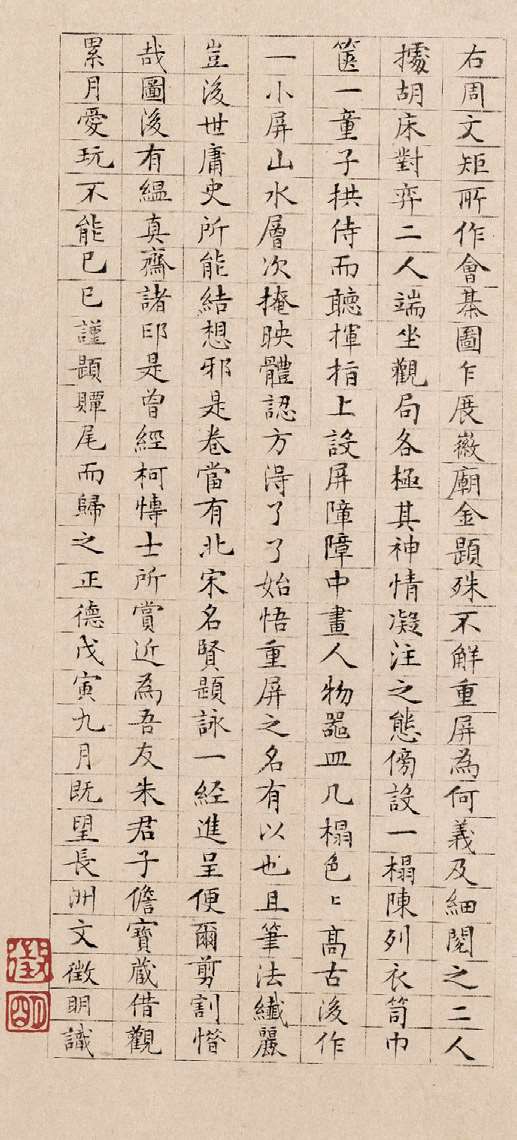 右周文矩所作會棊圖乍展徽廟金題殊不解重屏為何義及細閱之二人
據胡床對弈二人端坐觀局各極其神情凝注之態傍設一榻陳列衣笥巾
篋一童子拱侍而聽揮指上設屏障障中畫人物器皿几榻色〻高古後作
一小屏山水層次掩映體認方淂了了始悟重屏之名有以也且筆法纖麗
豈後世庸史所能結想邪是卷當有北宋名賢題詠一經進呈便爾剪割惜
哉圖後有緼真齋諸印是曾經柯博士所賞近為吾友朱君子儋寶蔵借觀
累月愛玩不能已已謹題贉尾而歸之正德戊寅九月既望長洲文徵明識
徵明